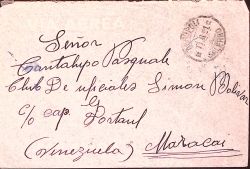 AEREA
Señor
Cantalupo Pasquale
Club De uficiales Simon Bolivar
c/o cap. G.
Postaul
(Venezuela) Maracai